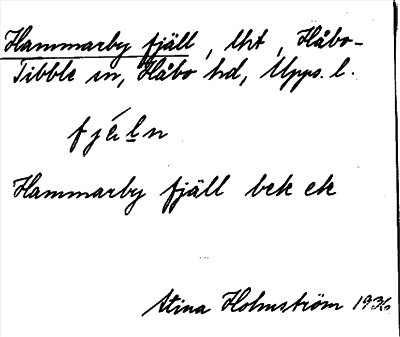 Hammarby fjäll, Uht, Håbo-
Tibble sn, Håbo hd, Upps. l.
fjéln
Hammarby fjäll bek ek
Stina Holmström 1936